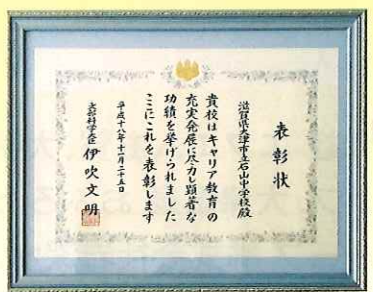 表彰状
滋賀県大津市立石山中学校殿
貴校はキャリア教育の
充実発展に尽力し顕著な
功績を挙げられました
ここにこれを表彰します
平成十八年十一月二十五日
文部科学大臣 伊吹文明